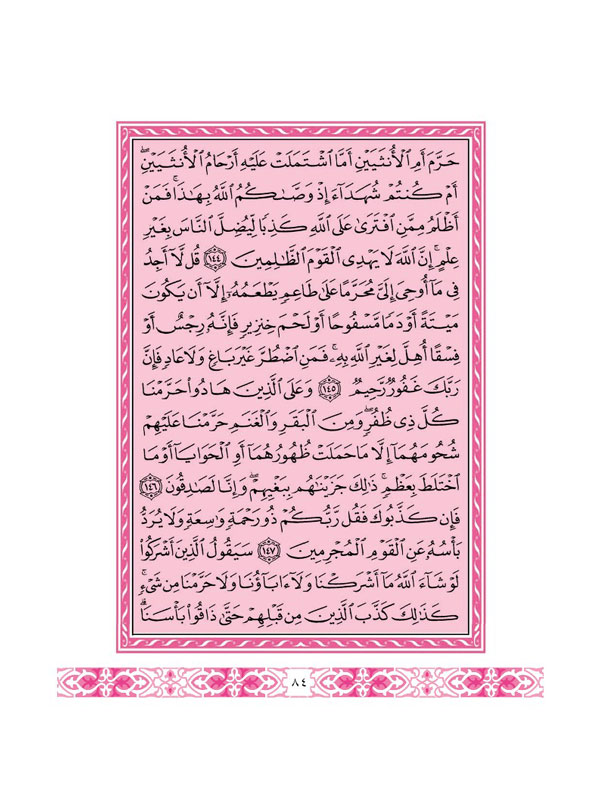 حَرَّمَ أَمِ ٱلۡأُنثَيَيۡنِ أَمَّا ٱشۡتَمَلَتۡ عَلَيۡهِ أَرۡحَامُ ٱلۡأُنثَيَيۡنِۖ
أَمۡ كُنتُمۡ شُهَدَآءَ إِذۡ وَصَّىٰكُمُ ٱللَّهُ بِهَٰذَاۚ فَمَنۡ
أَظۡلَمُ مِمَّنِ ٱفۡتَرَىٰ عَلَى ٱللَّهِ كَذِبٗا لِّيُضِلَّ ٱلنَّاسَ بِغَيۡرِ
عِلۡمٍۚ إِنَّ ٱللَّهَ لَا يَهۡدِي ٱلۡقَوۡمَ ٱلظَّٰلِمِينَ ١٤٤ قُل لَّآ أَجِدُ
فِي مَآ أُوحِيَ إِلَيَّ مُحَرَّمًا عَلَىٰ طَاعِمٖ يَطۡعَمُهُۥٓ إِلَّآ أَن يَكُونَ
مَيۡتَةً أَوۡ دَمٗا مَّسۡفُوحًا أَوۡ لَحۡمَ خِنزِيرٖ فَإِنَّهُۥ رِجۡسٌ أَوۡ
فِسۡقًا أُهِلَّ لِغَيۡرِ ٱللَّهِ بِهِۦۚ فَمَنِ ٱضۡطُرَّ غَيۡرَ بَاغٖ وَلَا عَادٖ فَإِنَّ
رَبَّكَ غَفُورٞ رَّحِيمٞ ١٤٥ وَعَلَى ٱلَّذِينَ هَادُواْ حَرَّمۡنَا
كُلَّ ذِي ظُفُرٖۖ وَمِنَ ٱلۡبَقَرِ وَٱلۡغَنَمِ حَرَّمۡنَا عَلَيۡهِمۡ
شُحُومَهُمَآ إِلَّا مَا حَمَلَتۡ ظُهُورُهُمَآ أَوِ ٱلۡحَوَايَآ أَوۡ مَا
ٱخۡتَلَطَ بِعَظۡمٖۚ ذَٰلِكَ جَزَيۡنَٰهُم بِبَغۡيِهِمۡۖ وَإِنَّا لَصَٰدِقُونَ ١٤٦
فَإِن كَذَّبُوكَ فَقُل رَّبُّكُمۡ ذُو رَحۡمَةٖ وَٰسِعَةٖ وَلَا يُرَدُّ
بَأۡسُهُۥ عَنِ ٱلۡقَوۡمِ ٱلۡمُجۡرِمِينَ ١٤٧ سَيَقُولُ ٱلَّذِينَ أَشۡرَكُواْ
لَوۡ شَآءَ ٱللَّهُ مَآ أَشۡرَكۡنَا وَلَآ ءَابَآؤُنَا وَلَا حَرَّمۡنَا مِن شَيۡءٖۚ
كَذَٰلِكَ كَذَّبَ ٱلَّذِينَ مِن قَبۡلِهِمۡ حَتَّىٰ ذَاقُواْ بَأۡسَنَاۗ
٨٤